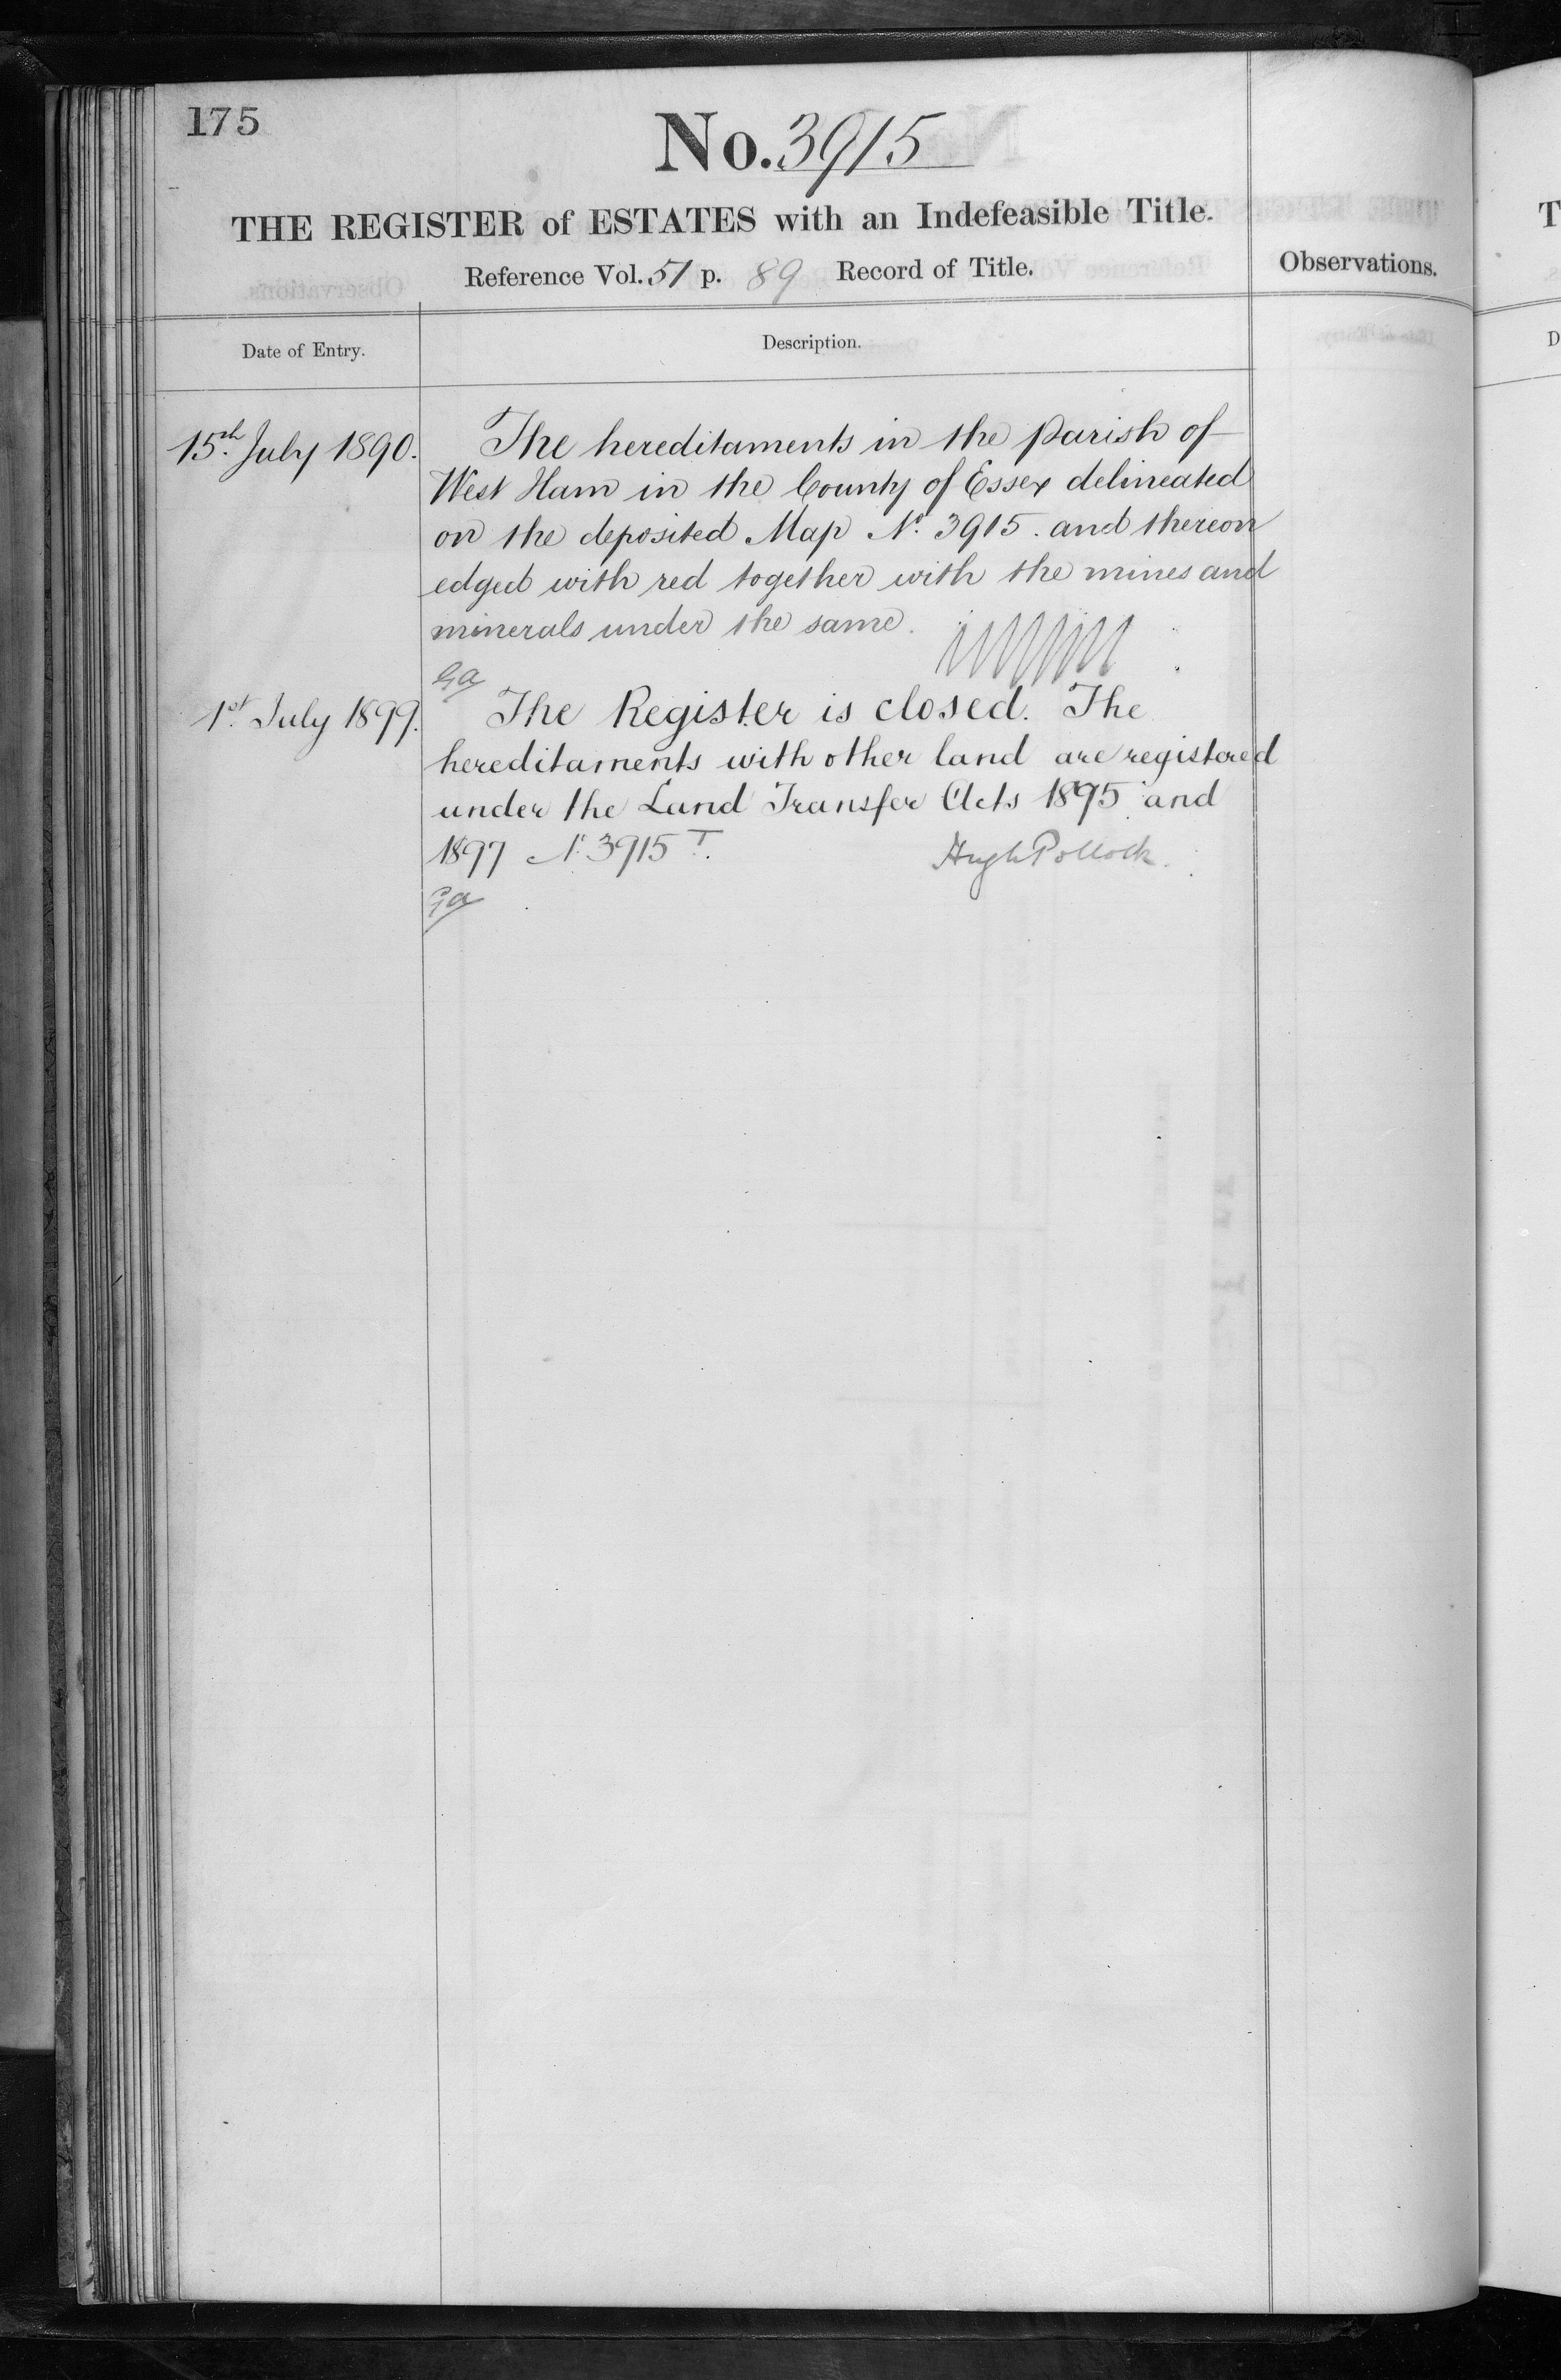 175
No. 3915
THE REGISTER of ESTATES with an Indefeasible Title.
Reference Vol. 51 p. 89 Record of Title.
Observations.
Date of Entry.
Description.
15th July 1890.
The hereditaments in the parish of
West Ham in the County of Essex delineated
on the deposited Map No. 3915. and thereon
edged with red together with the mines and
minerals under the same.
1st July 1899.
The Register is closed. The
hereditaments with other land are registered
under the Land Transfer Acts 1895 and
1897 No. 3915 T.
Hugh Pollock.